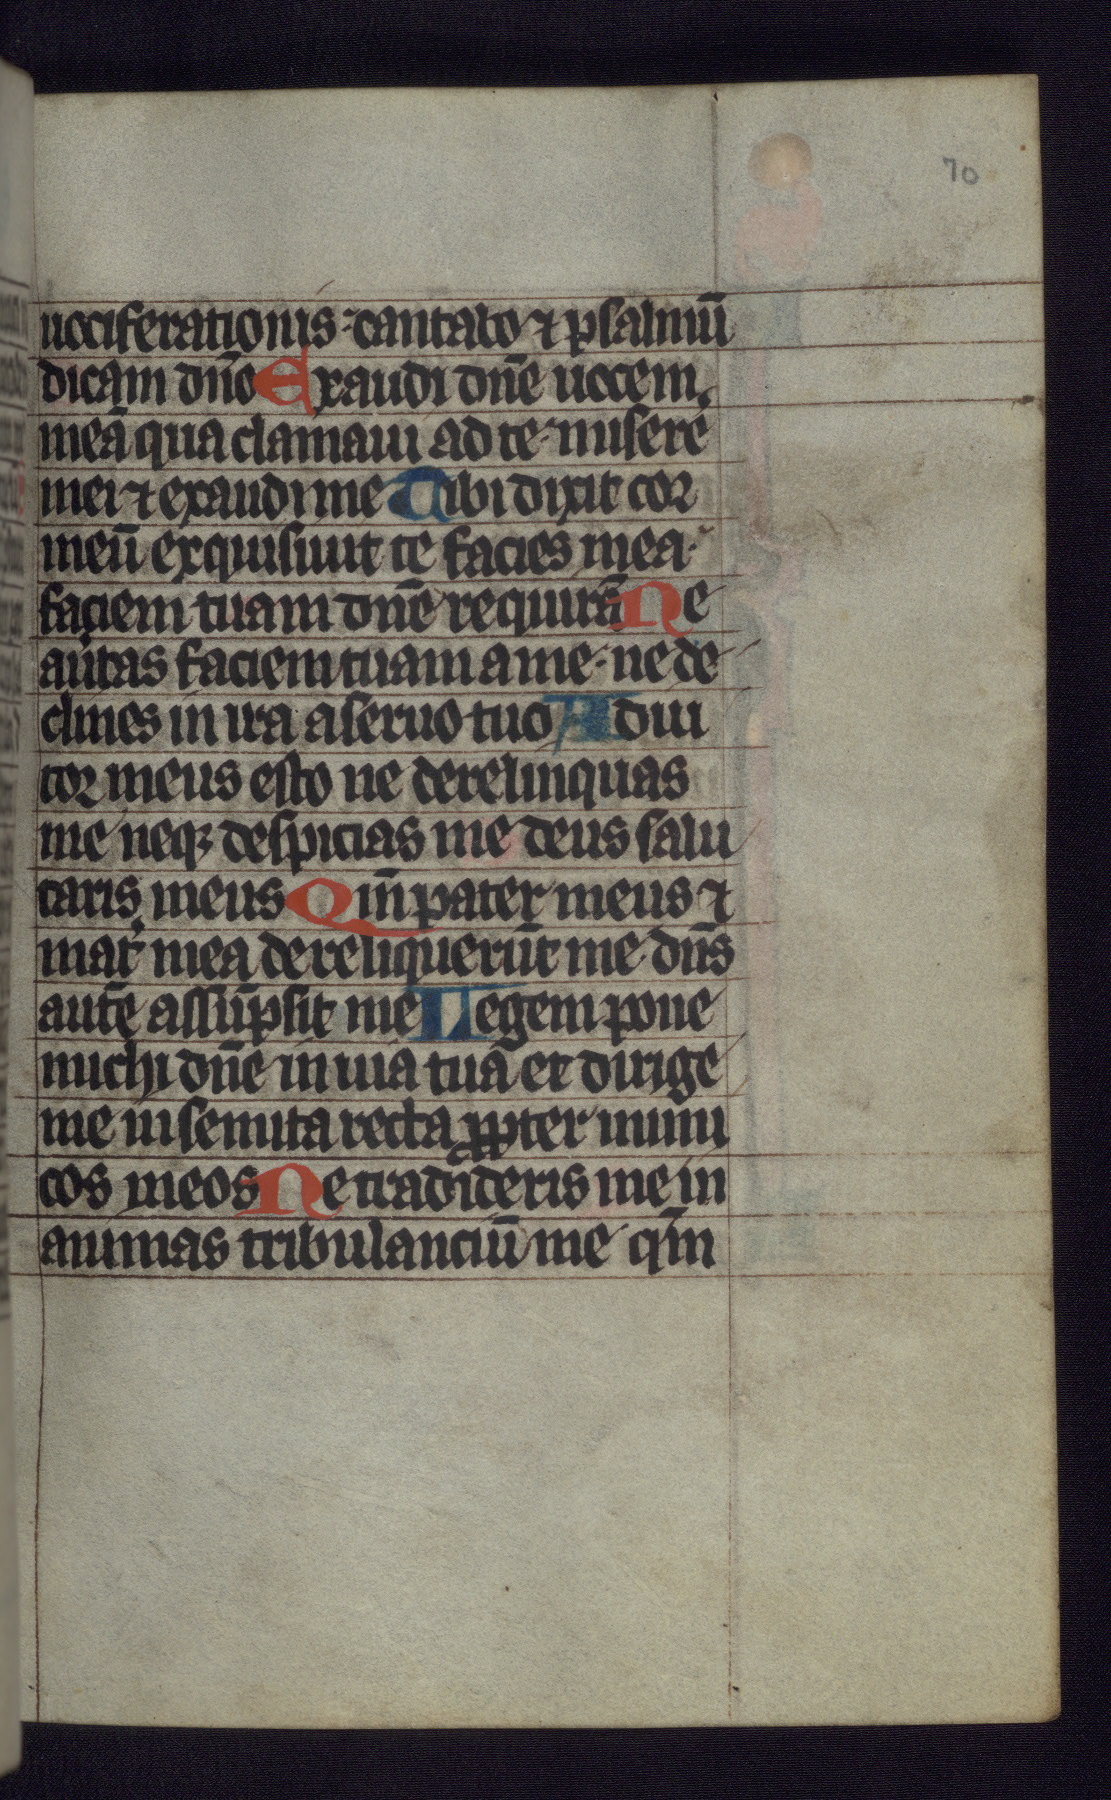 70
uociferationis cantabo ⁊ psalmū
dicam dn̄o Exaudi dn̄e uocem
meā qua clamaui ad te misere
mei ⁊ exaudi me Tibi dixit cor
meū exquisiuit te facies mea
faciem tuam dn̄e requirā Ne
au͛tas faciem tuam a me ne de
clines in ira a seruo tuo Adiu
tor meus esto ne derelinquas
me neqꝫ despicias me deus salu
taris meus Qm̄ pater meus ⁊
mat͛ mea dereliquerūt me dn̄s
autē assūpsit me Legem pone
michi dn̄e in uia tua et dirige
me in semita recta ꝓpter inimi
cos meos Ne tradideris me in
animas tribulanciū me qm̄